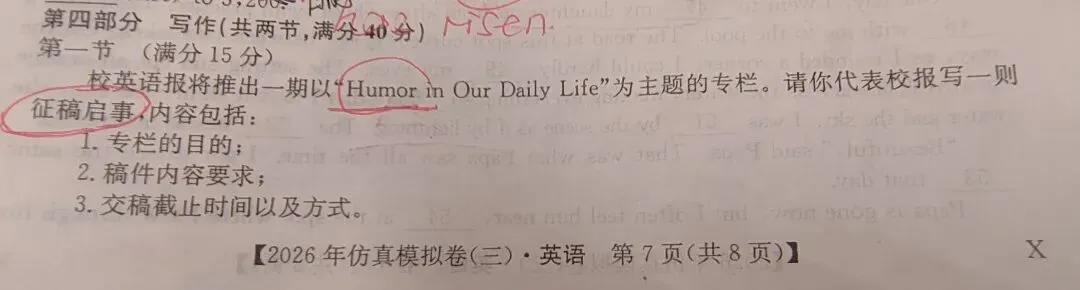 第四部分 写作(共两节,满分 40 分) risen
第一节 (满分 15 分)
校英语报将推出一期以“Humor in Our Daily Life”为主题的专栏。请你代表校报写一则
征稿启事,内容包括:
1. 专栏的目的;
2. 稿件内容要求;
3. 交稿截止时间以及方式。
【2026 年仿真模拟卷(三)·英语 第 7 页(共 8 页)】 X